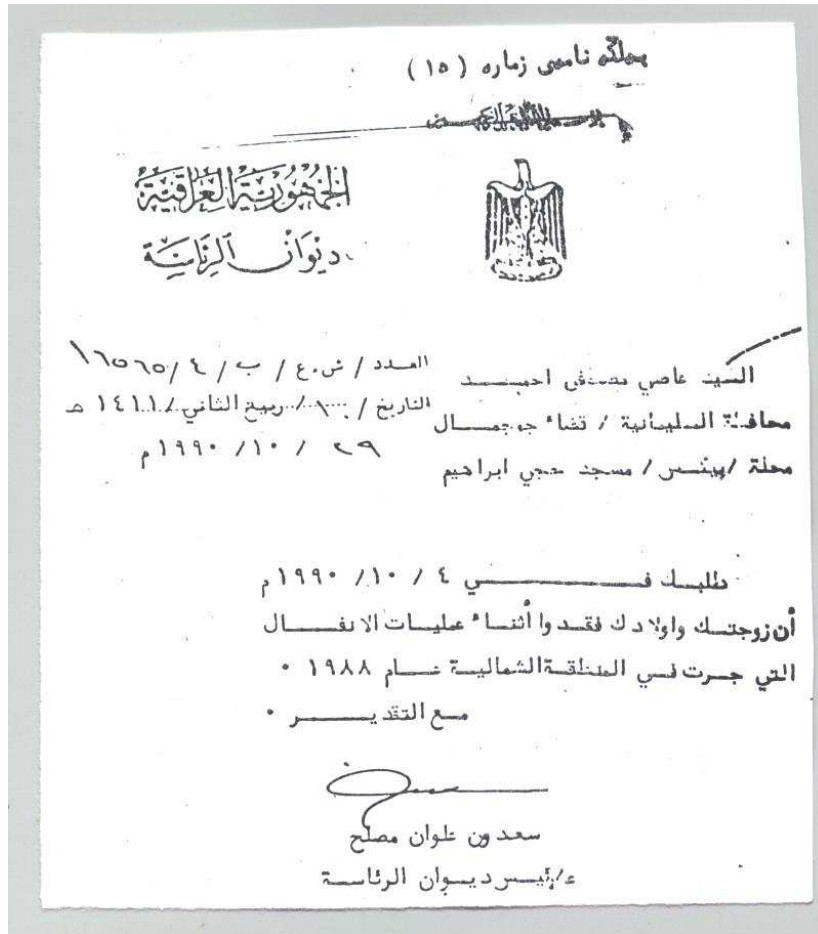 به‌ڵگه‌ نامه‌ی ژماره ( ١٥ )
بسم الله الرحمن الرحيم
الجمهورية العراقية
ديوان الرئاسة
العدد / ش.ع / ب / ٤ / ١٦٥٦٥
التاريخ / ١٠ / ربيع الثاني / ١٤١١ هـ
٢٩ / ١٠ / ١٩٩٠ م
السيد عاصي مصطفى احمد
محافظة السليمانية / قضاء جوجمال
محلة / بيشس / مسجد حجي ابراهيم
طلبك في ٤ / ١٠ / ١٩٩٠ م
أن زوجتك واولادك فقدوا أثناء عمليات الانفال
التي جرت في المنطقة الشمالية عام ١٩٨٨ ٠
مع التقدير ٠
سعدون علوان مصلح
ع/رئيس ديوان الرئاسة